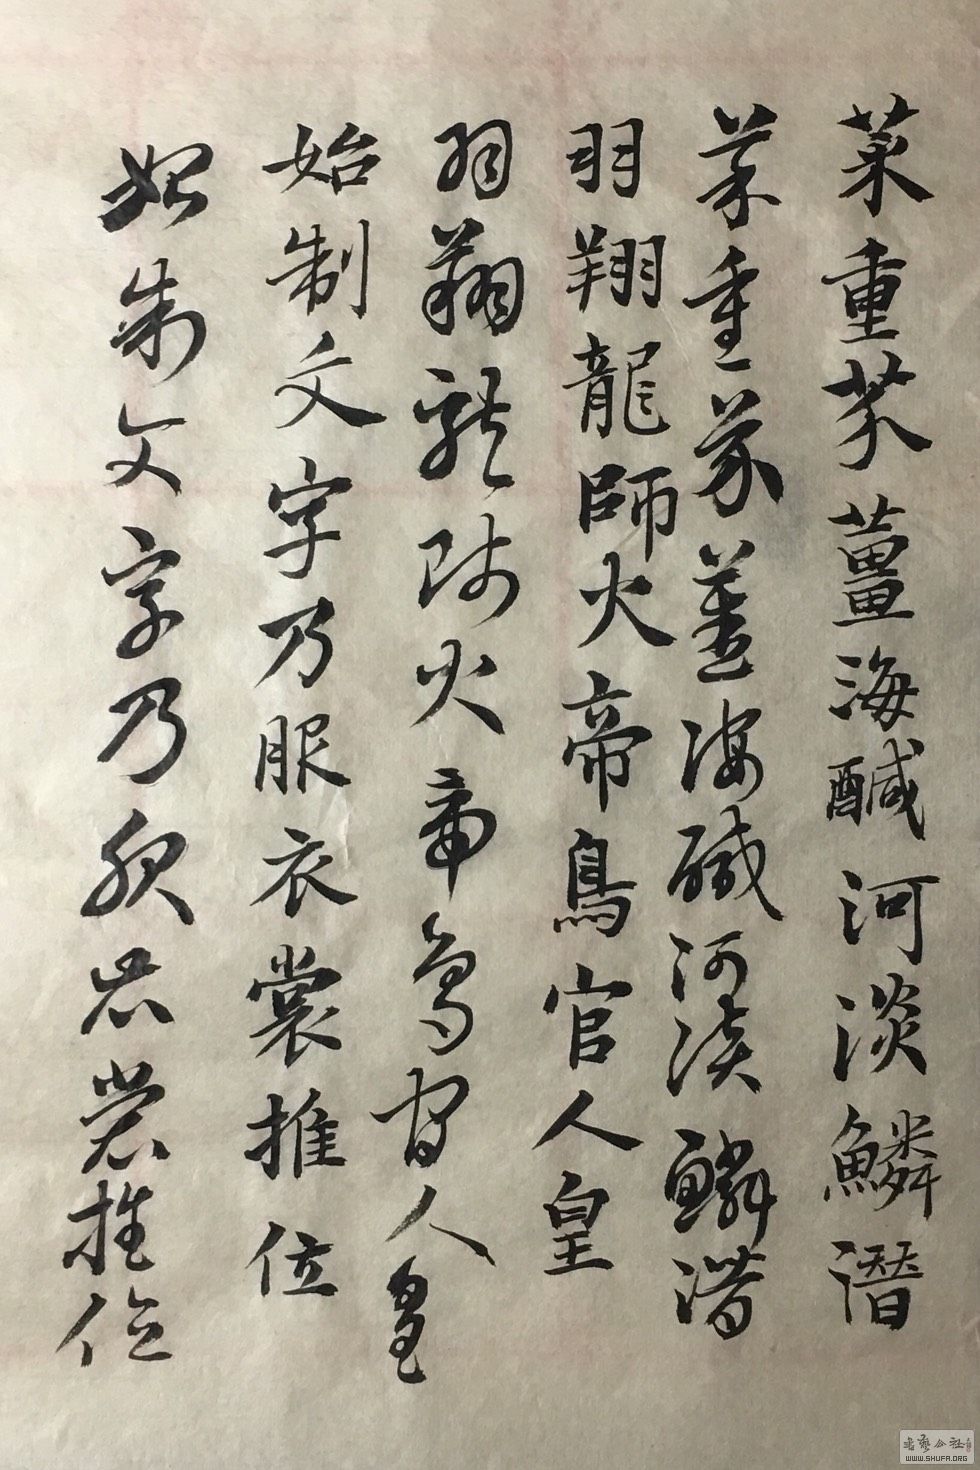 菜重芥薑海醎河淡鱗潛
菜重芥薑海醎河淡鱗潛
羽翔龍師火帝鳥官人皇
羽翔龍師火帝鳥官人皇
始制文字乃服衣裳推位
始制文字乃服衣裳推位
WWW.SHUFA.ORG